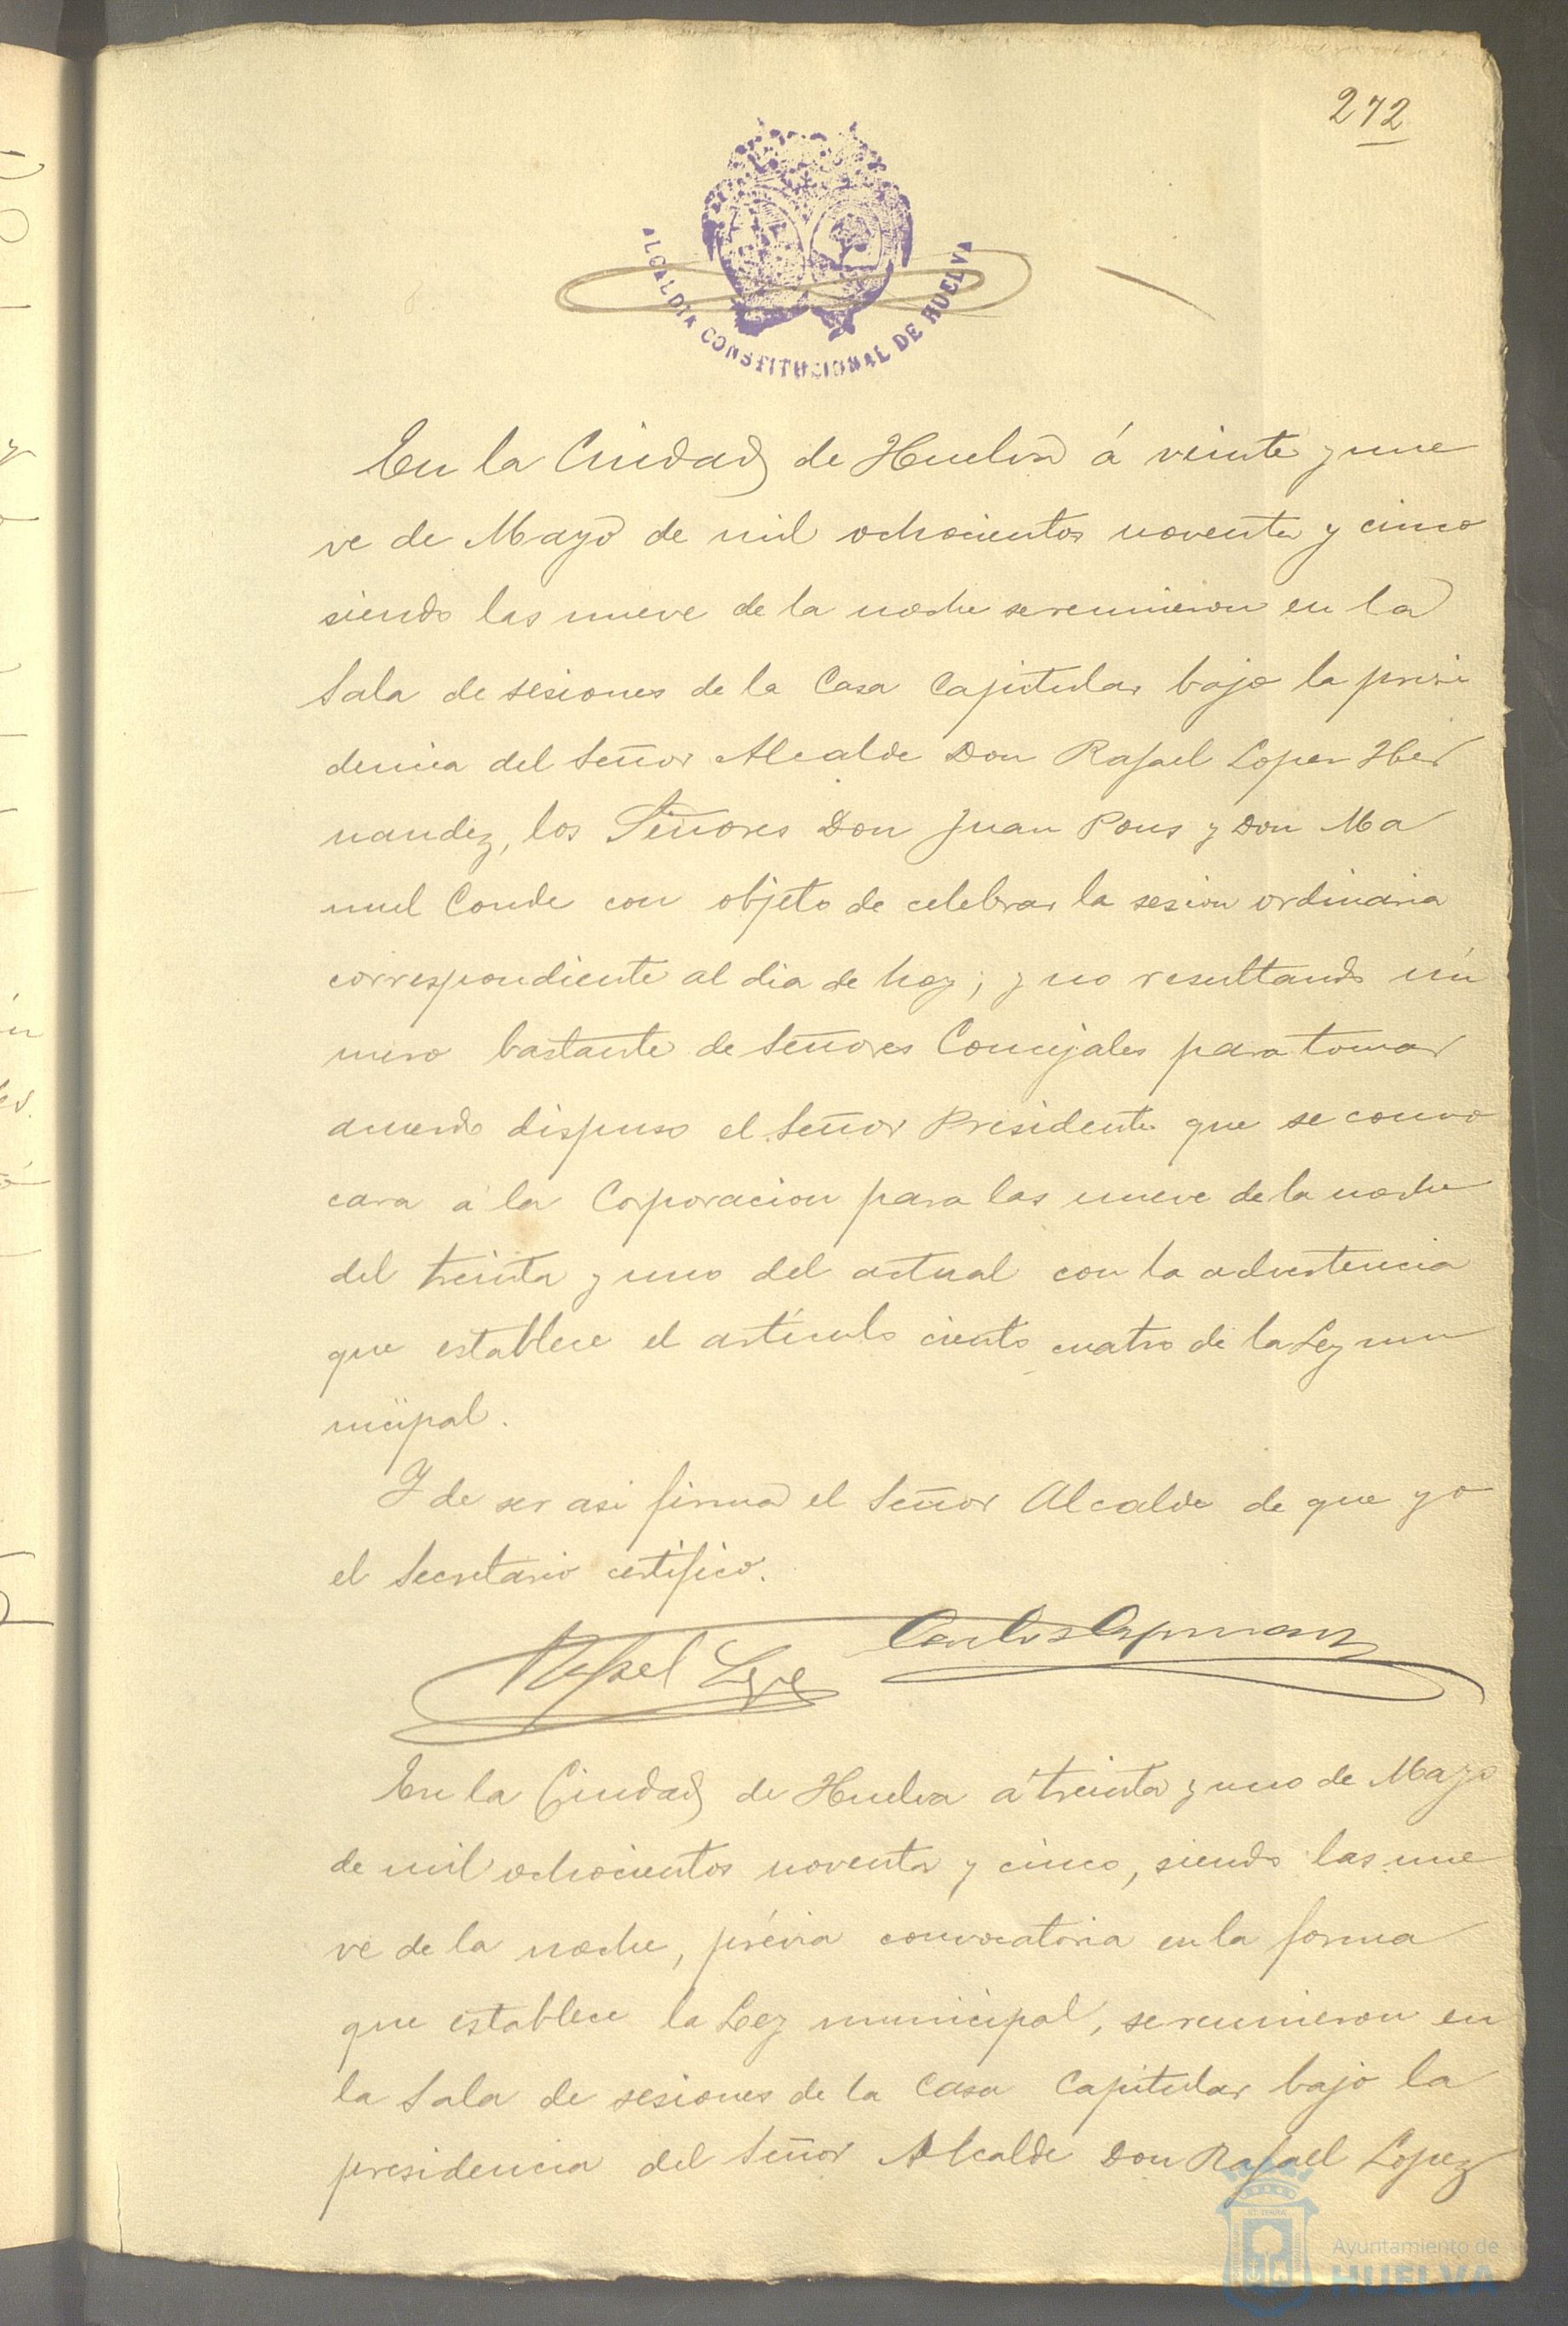 272
ALCALDIA CONSTITUCIONAL DE HUELVA
En la Ciudad de Huelva á veinte y nue
ve de Mayo de mil ochocientos noventa y cinco
siendo las nueve de la noche se reunieron en la
Sala de sesiones de la Casa Capitular bajo la presi
dencia del Señor Alcalde Don Rafael Lopez Her
nandez, los Señores Don Juan Pons y Don Ma
nuel Conde con objeto de celebrar la sesion ordinaria
correspondiente al dia de hoy; y no resultando nú
mero bastante de Señores Concejales para tomar
acuerdo dispuso el Señor Presidente que se convo
cara a la Corporacion para las nueve de la noche
del treinta y uno del actual con la advertencia
que establece el artículo ciento cuatro de la Ley mu
nicipal.
Y de ser asi firma el Señor Alcalde de que yo
el Secretario certifico.
Rafael Lopez
En la Ciudad de Huelva á treinta y uno de Mayo
de mil ochocientos noventa y cinco, siendo las nue
ve de la noche, prévia convocatoria en la forma
que establece la Ley municipal, se reunieron en
la Sala de sesiones de la Casa Capitular bajo la
presidencia del Señor Alcalde Don Rafael Lopez
Ayuntamiento de
HUELVA